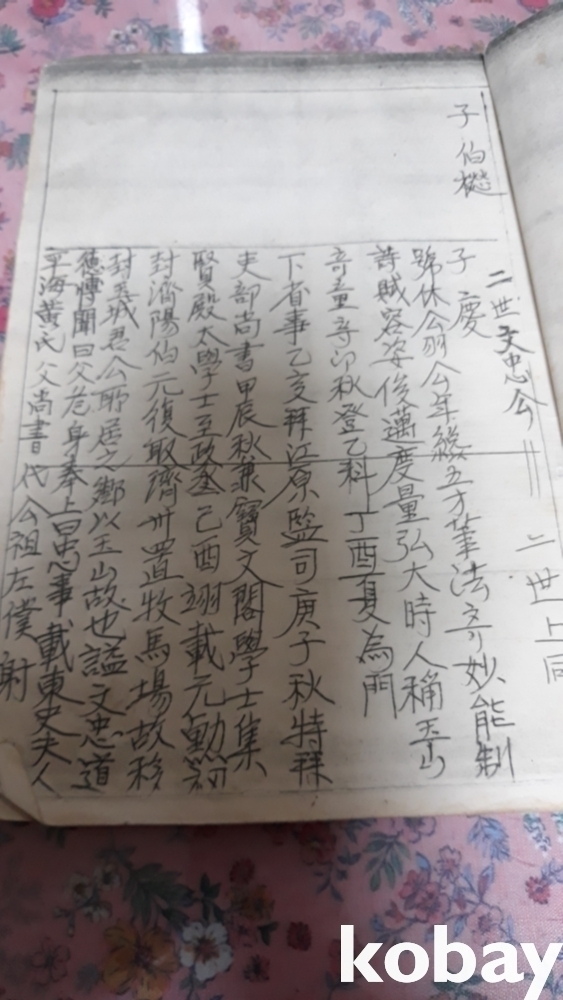 子 伯懋
二世文忠公
二世上同
子慶
號休翁公年纔五才筆法奇妙能制
詩賦容姿俊邁度量弘大時人稱玉山
奇童辛卯秋登乙科丁酉夏為門
下省事乙亥拜江原監司庚子秋特拜
吏部尚書甲辰秋兼寶文閣學士集
賢殿太學士至政堂己酉翊載元勳
封濟陽伯元復取濟州置牧馬場故移
封玉城君公所居之鄉以玉山故也諡文忠道
德博聞曰文危身奉上曰忠事載東史夫人
平海黃氏父尚書代公祖左僕射
kobay